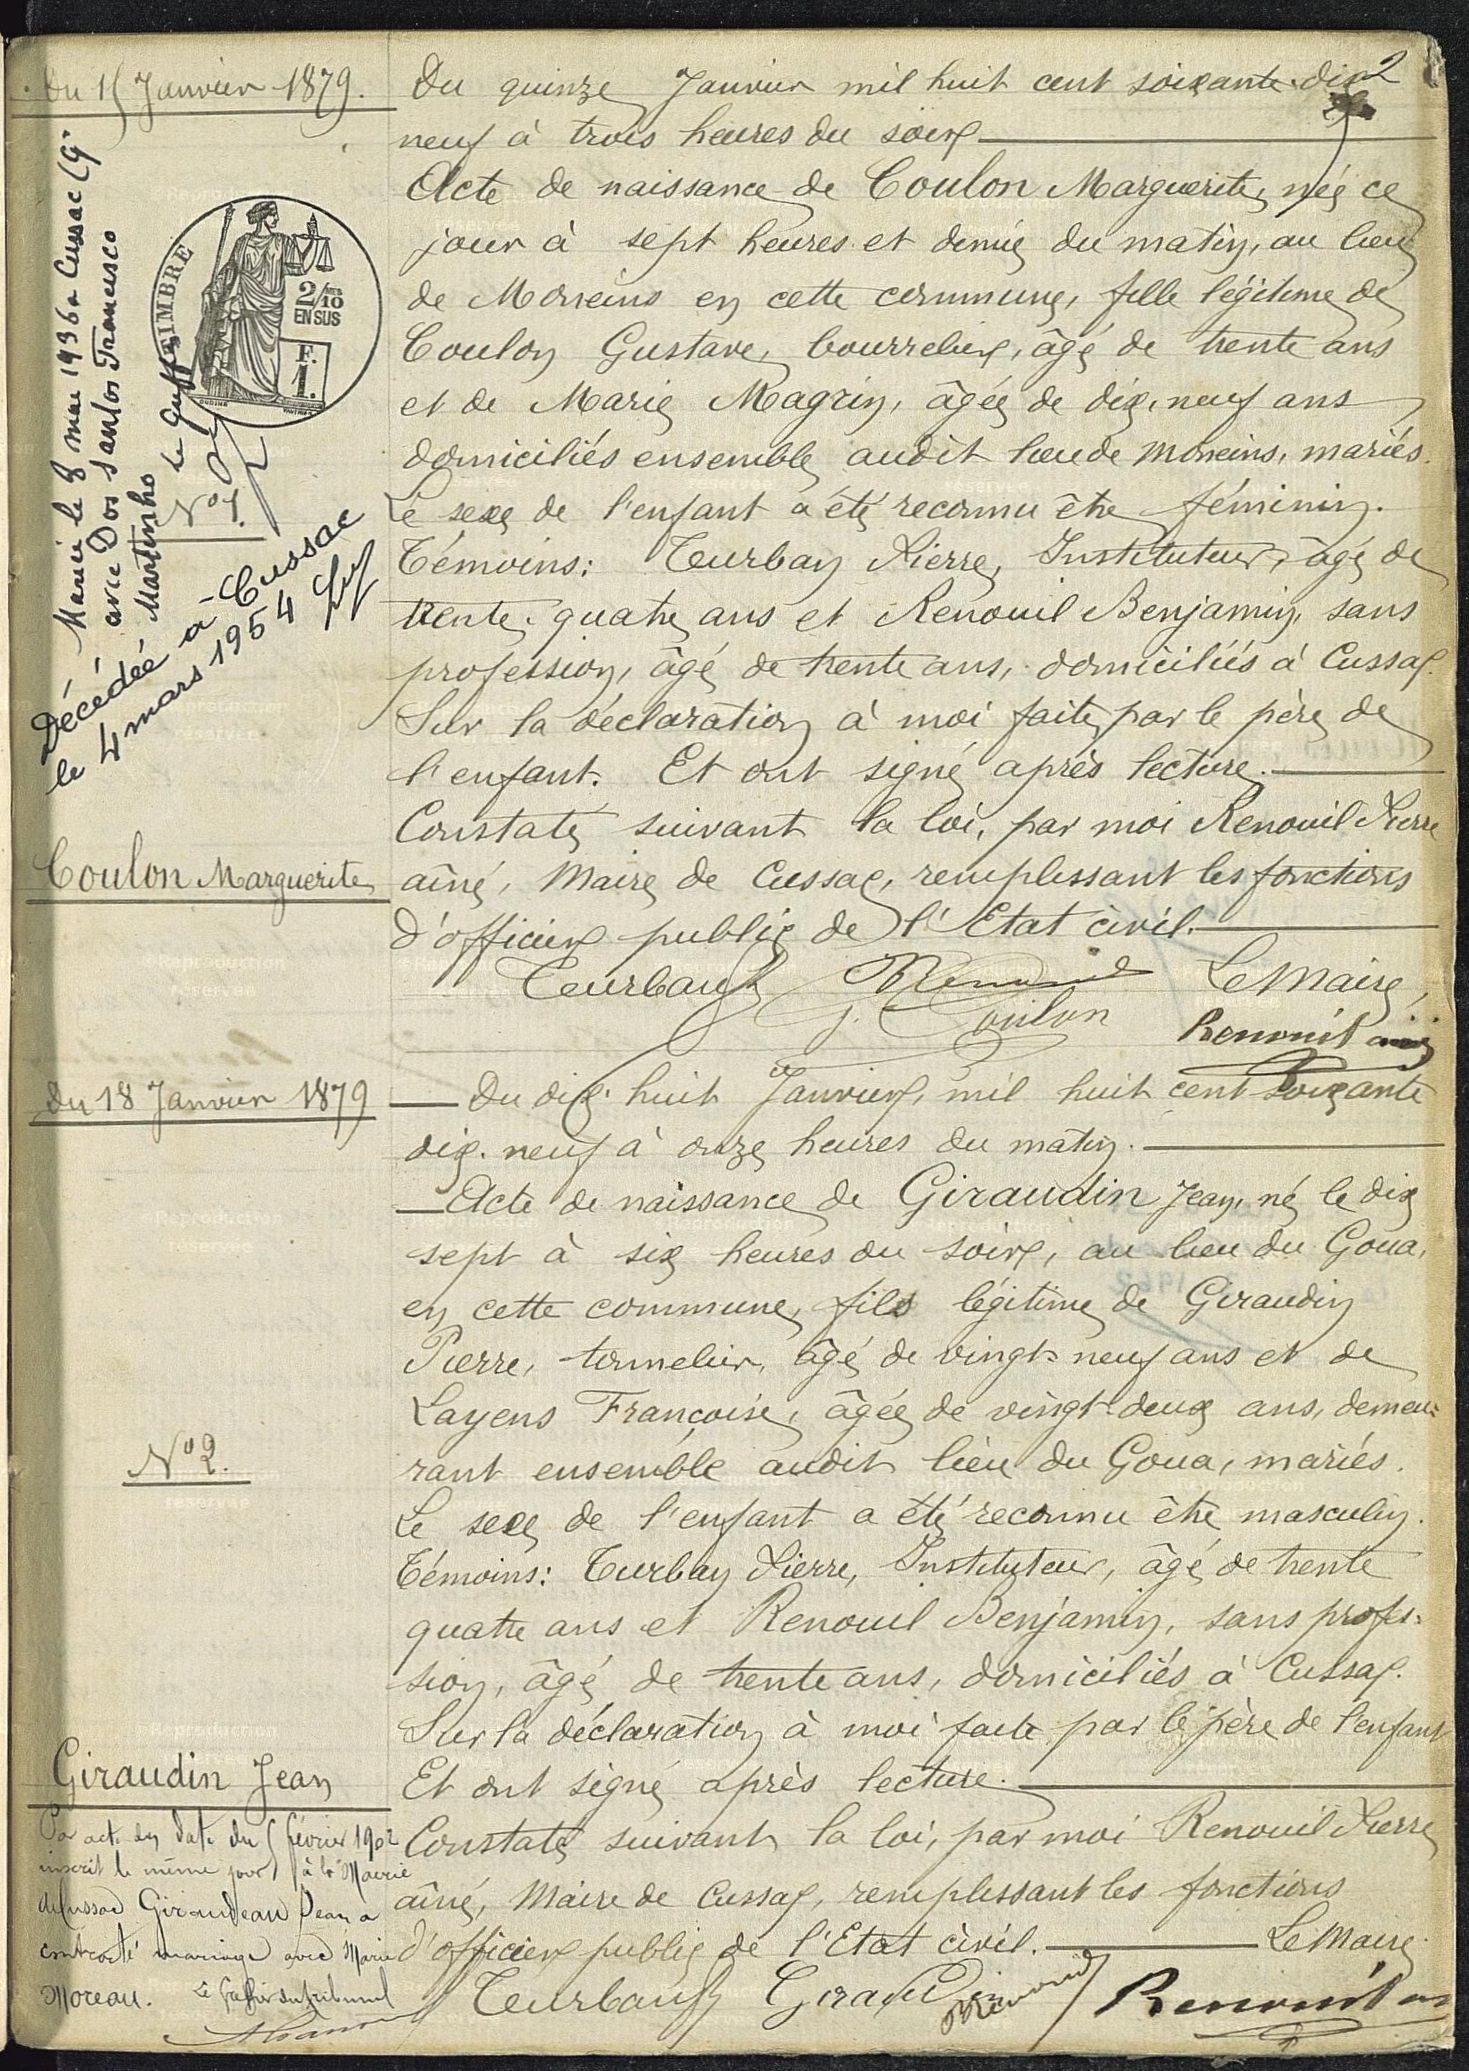 2
Du 15 Janvier 1879.
Marié le 8 mai 1936 a Cussac (Gde
avec Dos Santos Francisco
Martinho
le Greffier
TIMBRE
2/10
EN SUS
F.
1.
No 1.
Décédée à Cussac
le 4 mars 1954
Coulon Marguerite
Du quinze Janvier mil huit cent soixante-dix
neuf à trois heures du soir
Acte de naissance de Coulon Marguerite, née ce
jour à sept heures et demie du matin, au lieu
de Morneins en cette commune, fille légitime de
Coulon Gustave, bourrelier, âgé de trente ans
et de Marie Magrin, âgée de dix-neuf ans
domiciliés ensemble audit lieu de Morneins, mariés.
Le sexe de l'enfant a été reconnu être féminin.
Témoins: Teurbay Pierre, Instituteur, âgé de
trente-quatre ans et Renouil Benjamin, sans
profession, âgé de trente ans, domiciliés à Cussac.
Sur la déclaration à moi faite par le père de
l'enfant. Et ont signé après lecture.
Constaté suivant la loi, par moi Renouil Pierre
aîné, Maire de Cussac, remplissant les fonctions
d'officier public de l'Etat civil.
Le Maire,
G. Coulon
Renouil aîné
Du 18 Janvier 1879
No 2.
Giraudin Jean
Du dix-huit Janvier, mil huit cent soixante
dix-neuf à onze heures du matin.
Acte de naissance de Giraudin Jean, né le dix
sept à six heures du soir, au lieu du Goua,
en cette commune, fils légitime de Giraudin
Pierre, tonnelier, âgé de vingt-neuf ans et de
Layens Françoise, âgée de vingt-deux ans, demeu=
rant ensemble audit lieu du Goua, mariés.
Le sexe de l'enfant a été reconnu être masculin.
Témoins: Teurbay Pierre, Instituteur, âgé de trente
quatre ans et Renouil Benjamin, sans profes=
sion, âgé de trente ans, domiciliés à Cussac.
Sur la déclaration à moi faite par le père de l'enfant
Et ont signé après lecture.
Constaté suivant la loi, par moi Renouil Pierre
aîné, Maire de Cussac, remplissant les fonctions
d'officier public de l'Etat civil. Le Maire
Giraudin
Renouil
Par acte en date du 5 février 1902
inscrit le même jour à la Mairie
de Cussac Giraudeau Jean a
contracté mariage avec Marie
Moreau. Le Greffier du tribunal